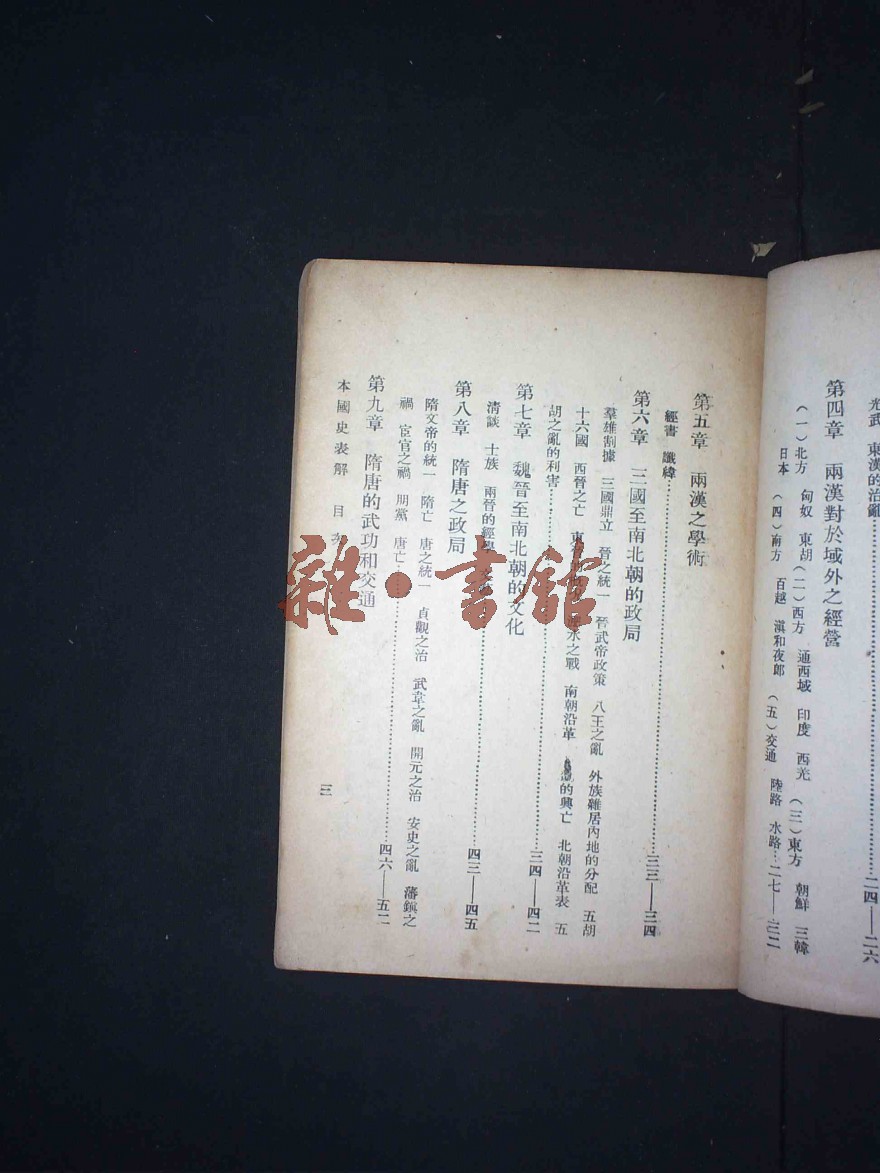 光武　東漢的治亂…………二四——二六
第四章　兩漢對於域外之經營
（一）北方　匈奴　東胡（二）西方　通西域　印度　西羌　（三）東方　朝鮮　三韓
日本　（四）南方　百越　滇和夜郎　（五）交通　陸路　水路…二七——三二
第五章　兩漢之學術
經書　讖緯…………三三——三四
第六章　三國至南北朝的政局
羣雄割據　三國鼎立　晉之統一　晉武帝政策　八王之亂　外族雜居內地的分配　五胡
十六國　西晉之亡　東　水之戰　南朝沿革　的興亡　北朝沿革表　五
胡之亂的利害…………三四——四二
第七章　魏晉至南北朝的文化
清談　士族　兩晉的經學…………四三——四五
第八章　隋唐之政局
隋文帝的統一　隋亡　唐之統一　貞觀之治　武韋之亂　開元之治　安史之亂　藩鎮之
禍　宦官之禍　朋黨　唐亡…………四六——五二
第九章　隋唐的武功和交通
本國史表解　目
三
雜·書館